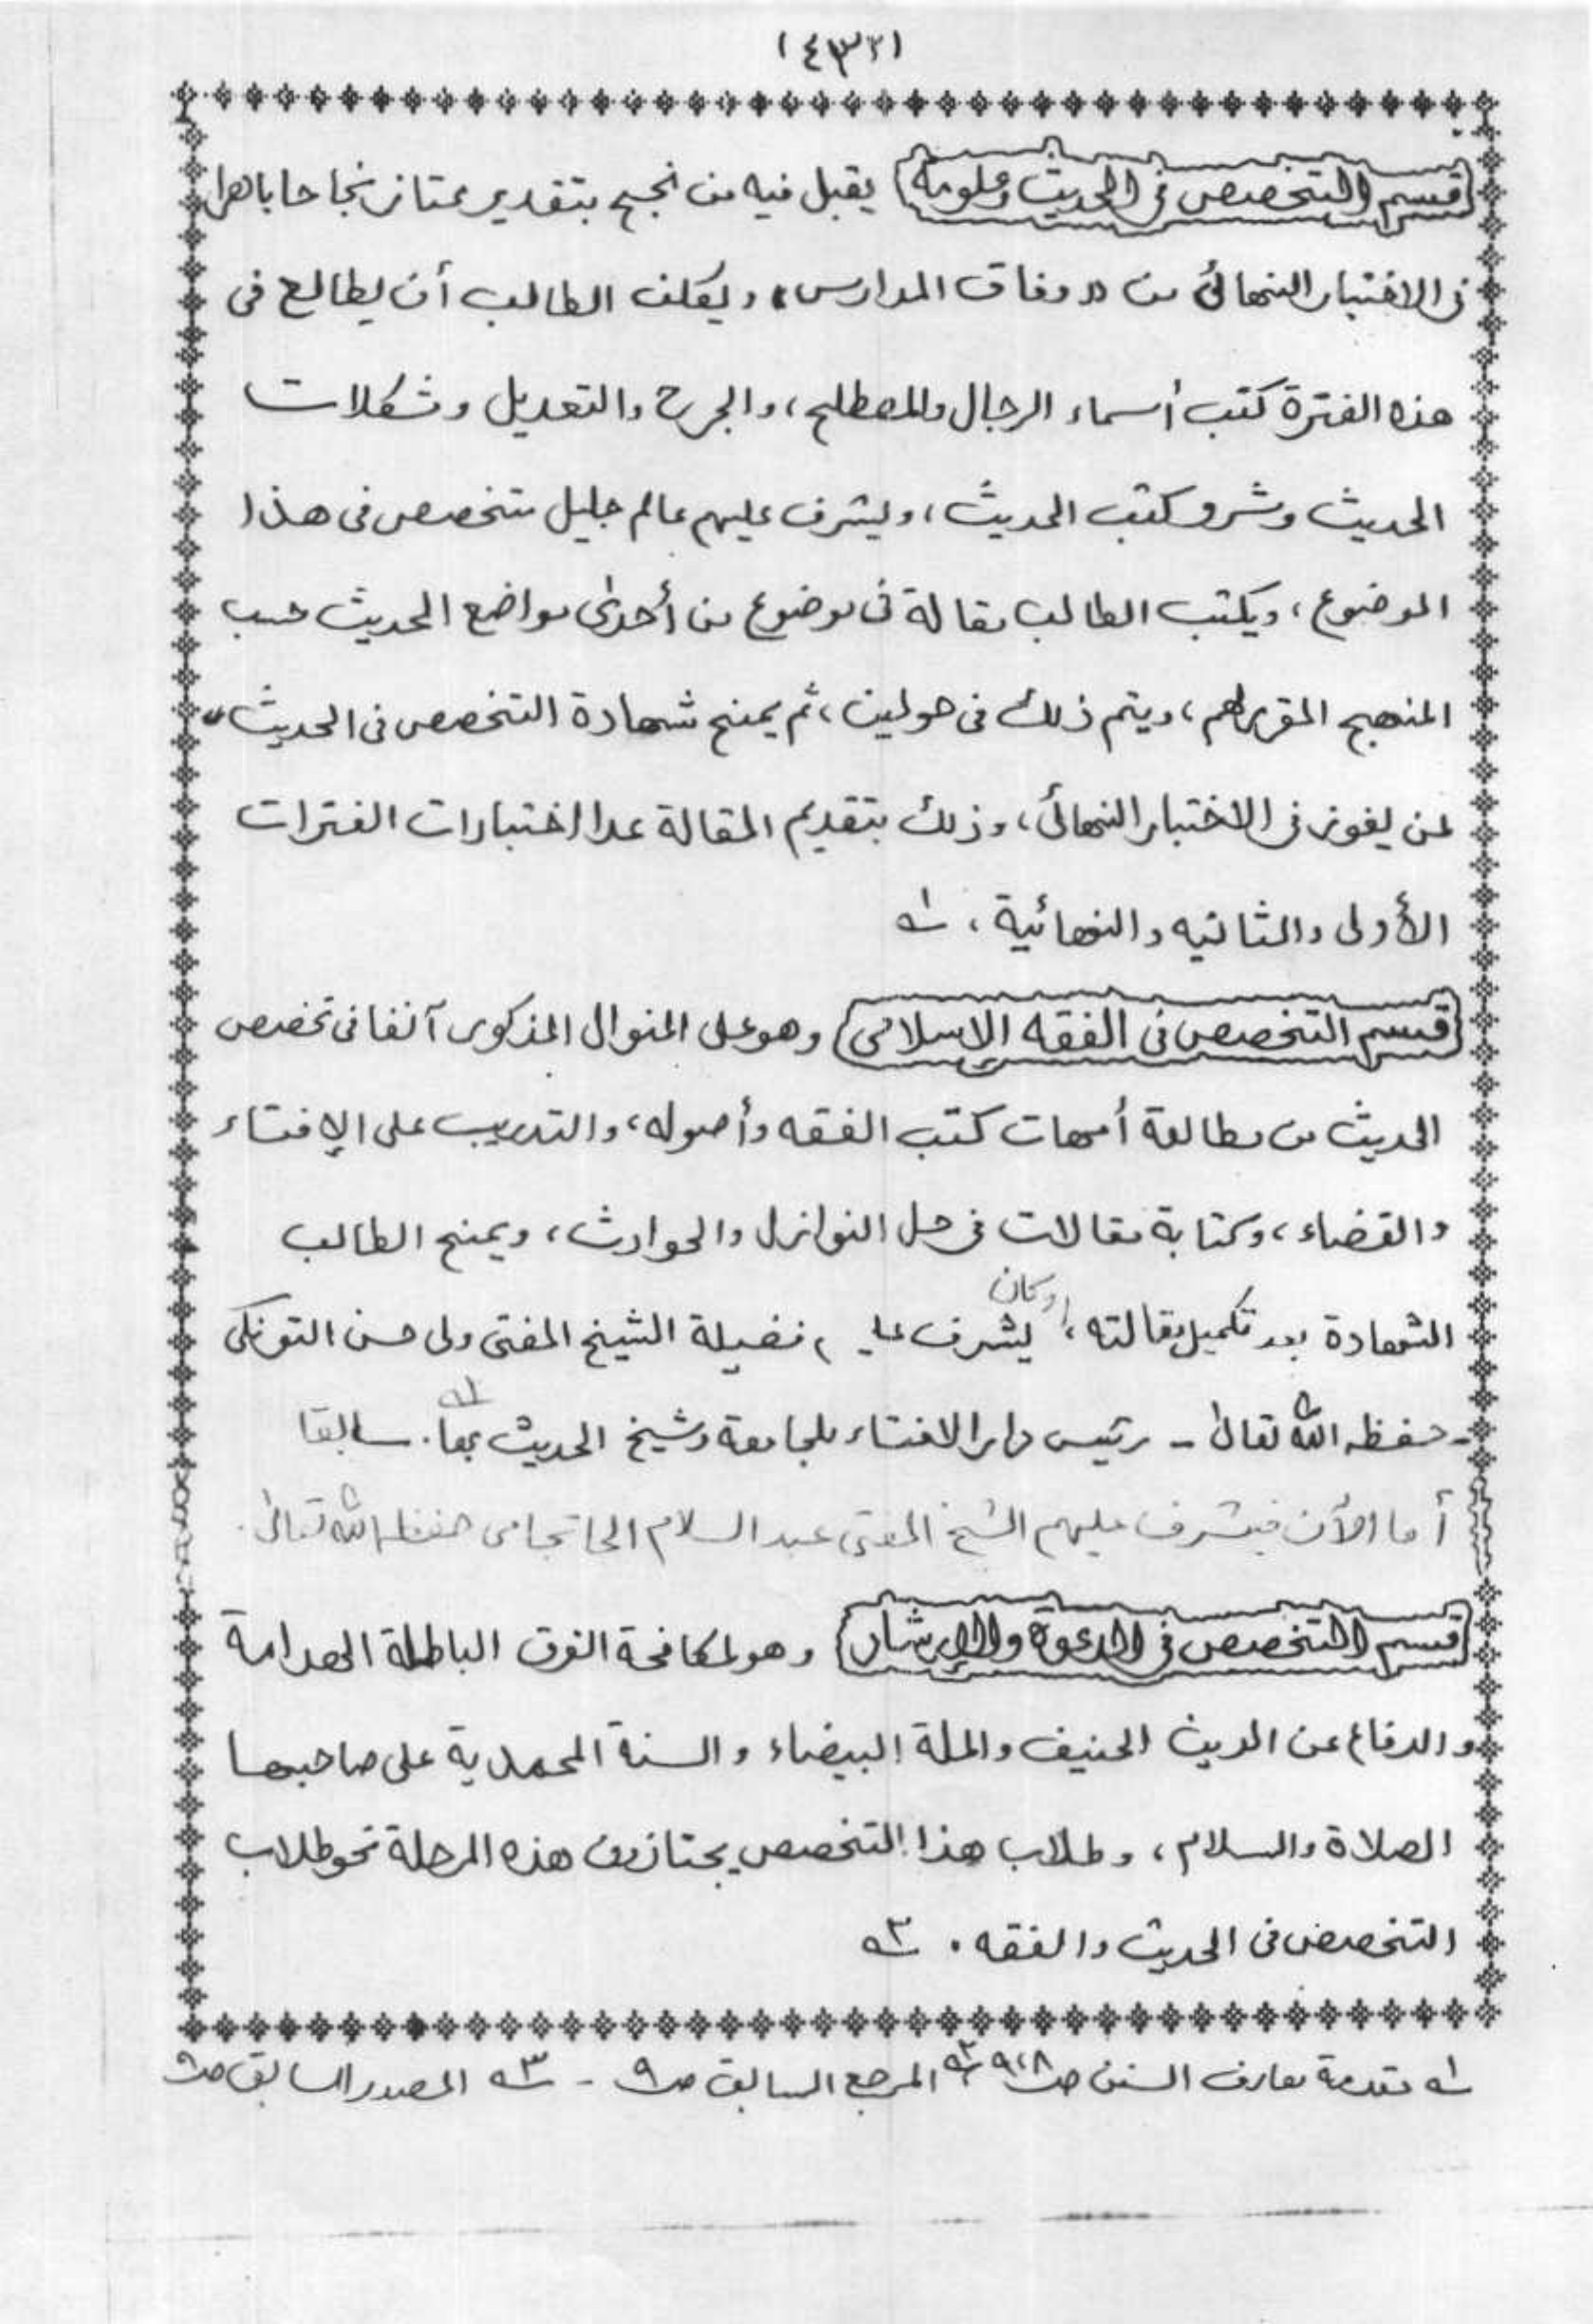 (٤٣٢)
قسم التخصص فى الحديث وعلومه يقبل فيه من نجح بتقدير ممتاز نجاحا باهرا
فى الاختبار النهائى من «وفاق المدارس» ويكلف الطالب أن يطالع فى
هذه الفترة كتب أسماء الرجال والمصطلح، والجرح والتعديل ومشكلات
الحديث وشروح كتب الحديث، ويشرف عليهم عالم جليل متخصص فى هذا
الموضوع، ويكتب الطالب مقالة فى موضوع من أحدى مواضع الحديث حسب
المنهج المقرر لهم، ويتم ذلك فى حولين، ثم يمنح شهادة التخصص فى الحديث
لمن يفوز فى الاختبار النهائى، وذلك بتقديم المقالة عدا اختبارات الفترات
الأولى والثانيه والنهائية، ١ه
قسم التخصص فى الفقه الإسلامى وهو على المنوال المذكور آنفا فى تخصص
الحديث من مطالعة أمهات كتب الفقه وأصوله، والتدريب على الإفتاء
والقضاء، وكتابة مقالات فى حل النوازل والحوادث، ويمنح الطالب
الشهادة بعد تكميل مقالته، وكان يشرف عليه فضيلة الشيخ المفتى ولى حسن التونكى
- حفظه الله تعالىٰ - رئيس دار الافتاء بالجامعة وشيخ الحديث بها. ٢ه سابقا
أما الأن فيشرف عليهم الشيخ المفتى عبد السلام الجاتجامى حفظه الله تعالىٰ.
قسم التخصص فى الدعوة والإرشاد وهو لمكافحة الفرق الباطلة الهدامة
والدفاع عن الدين الحنيف والملة البيضاء والسنة المحمدية على صاحبها
الصلاة والسلام، وطلاب هذا التخصص يجتازون هذه المرحلة نحو طلاب
التخصص فى الحديث والفقه. ٣ه
١ه مقدمة معارف السنن ص ٩،٨ ٢ه المرجع السابق ص ٩ - ٣ه المصدر السابق ص ٩